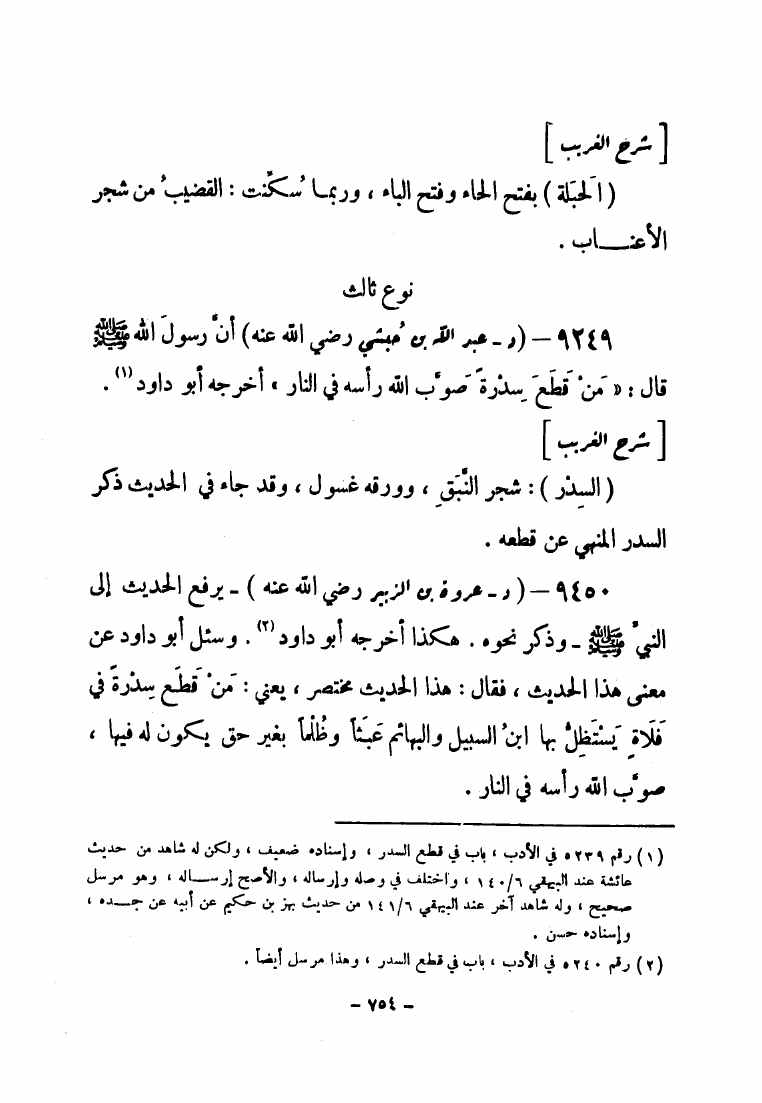 [ شرح الغريب ]
( الحَبَلَة ) بفتح الحاء وفتح الباء ، وربما سُكِّنت : القضيبُ من شجر
الأعنــاب .
نوع ثالث
٩٢٤٩ — (د ـ عبد الله بن حُبشي رضي الله عنه) أنَّ رسولَ الله ﷺ
قال : « مَنْ قَطَعَ سِدْرةً صَوَّب الله رأسه في النار » أخرجه أبو داود(١) .
[ شرح الغريب ]
( السِدْر ) : شجر النَّبَقِ ، وورقه غسول ، وقد جاء في الحديث ذكر
السدر المنهي عن قطعه .
٩٤٥٠ — ( د ـ عروة بن الزبير رضي الله عنه ) ـ يرفع الحديث إلى
النبيِّ ﷺ ـ وذكر نحوه . هكذا أخرجه أبو داود(٢) . وسئل أبو داود عن
معنى هذا الحديث ، فقال : هذا الحديث مختصر ، يعني : مَنْ قَطَع سِدْرةً في
فَلَاةٍ يَسْتَظِلُّ بها ابنُ السبيل والبهائم عَبَثاً وظُلْماً بغير حق يكون له فيها ،
صوَّب الله رأسه في النار .
(١) رقم ٥٢٣٩ في الأدب ، باب في قطع السدر ، وإسناده ضعيف ، ولكن له شاهد من حديث
عائشة عند البيهقي ١٤٠/٦ ، واختلف في وصله وإرساله ، والأصح إرســاله ، وهو مرسل
صحيح ، وله شاهد آخر عند البيهقي ١٤١/٦ من حديث بهز بن حكيم عن أبيه عن جــده ،
وإسناده حسن .
(٢) رقم ٥٢٤٠ في الأدب ، باب في قطع السدر ، وهذا مرسل أيضاً .
- ٧٥٤ -